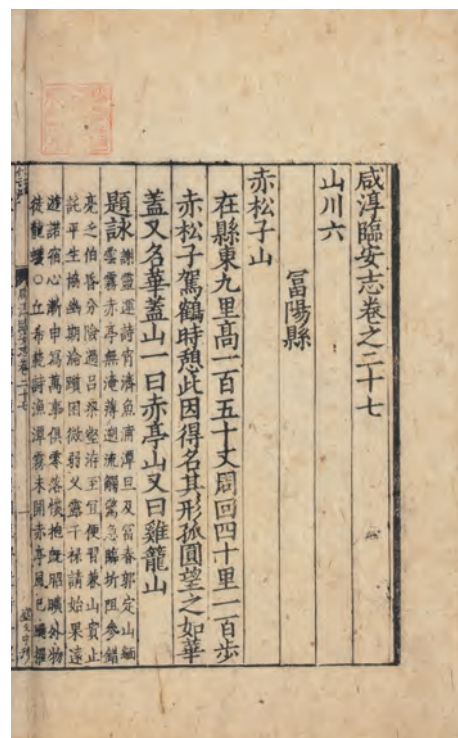 咸淳臨安志卷之二十七
山川六
富陽縣
赤松子山
在縣東九里高一百五十丈周回四十里一百步
赤松子駕鶴時憩此因得名其形孤圓望之如華
蓋又名華蓋山一曰赤亭山又曰雞籠山
題詠
謝靈運詩宵濟魚浦潭旦及富春郭定山緬
雲霧赤亭無淹薄遡流觸驚急臨圻阻參錯
亮之伯昏分險過呂梁壑洊至宜便習兼山貴止
託平生協幽期淪躓困微弱又露干祿請始果遠
遊諾宿心漸申寫萬事俱零落懷抱旣昭曠外物
徒龍蠖○丘希範詩漁潭霧未開赤亭風已颺